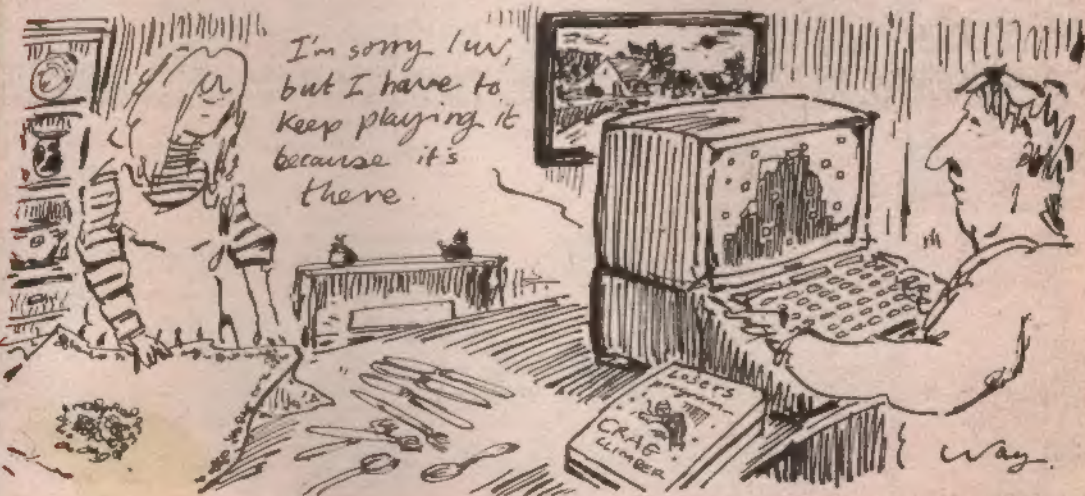 I'm sorry luv,
but I have to
keep playing it
because it's
there.
Losers
program
CRAG
CLIMBER
Way.